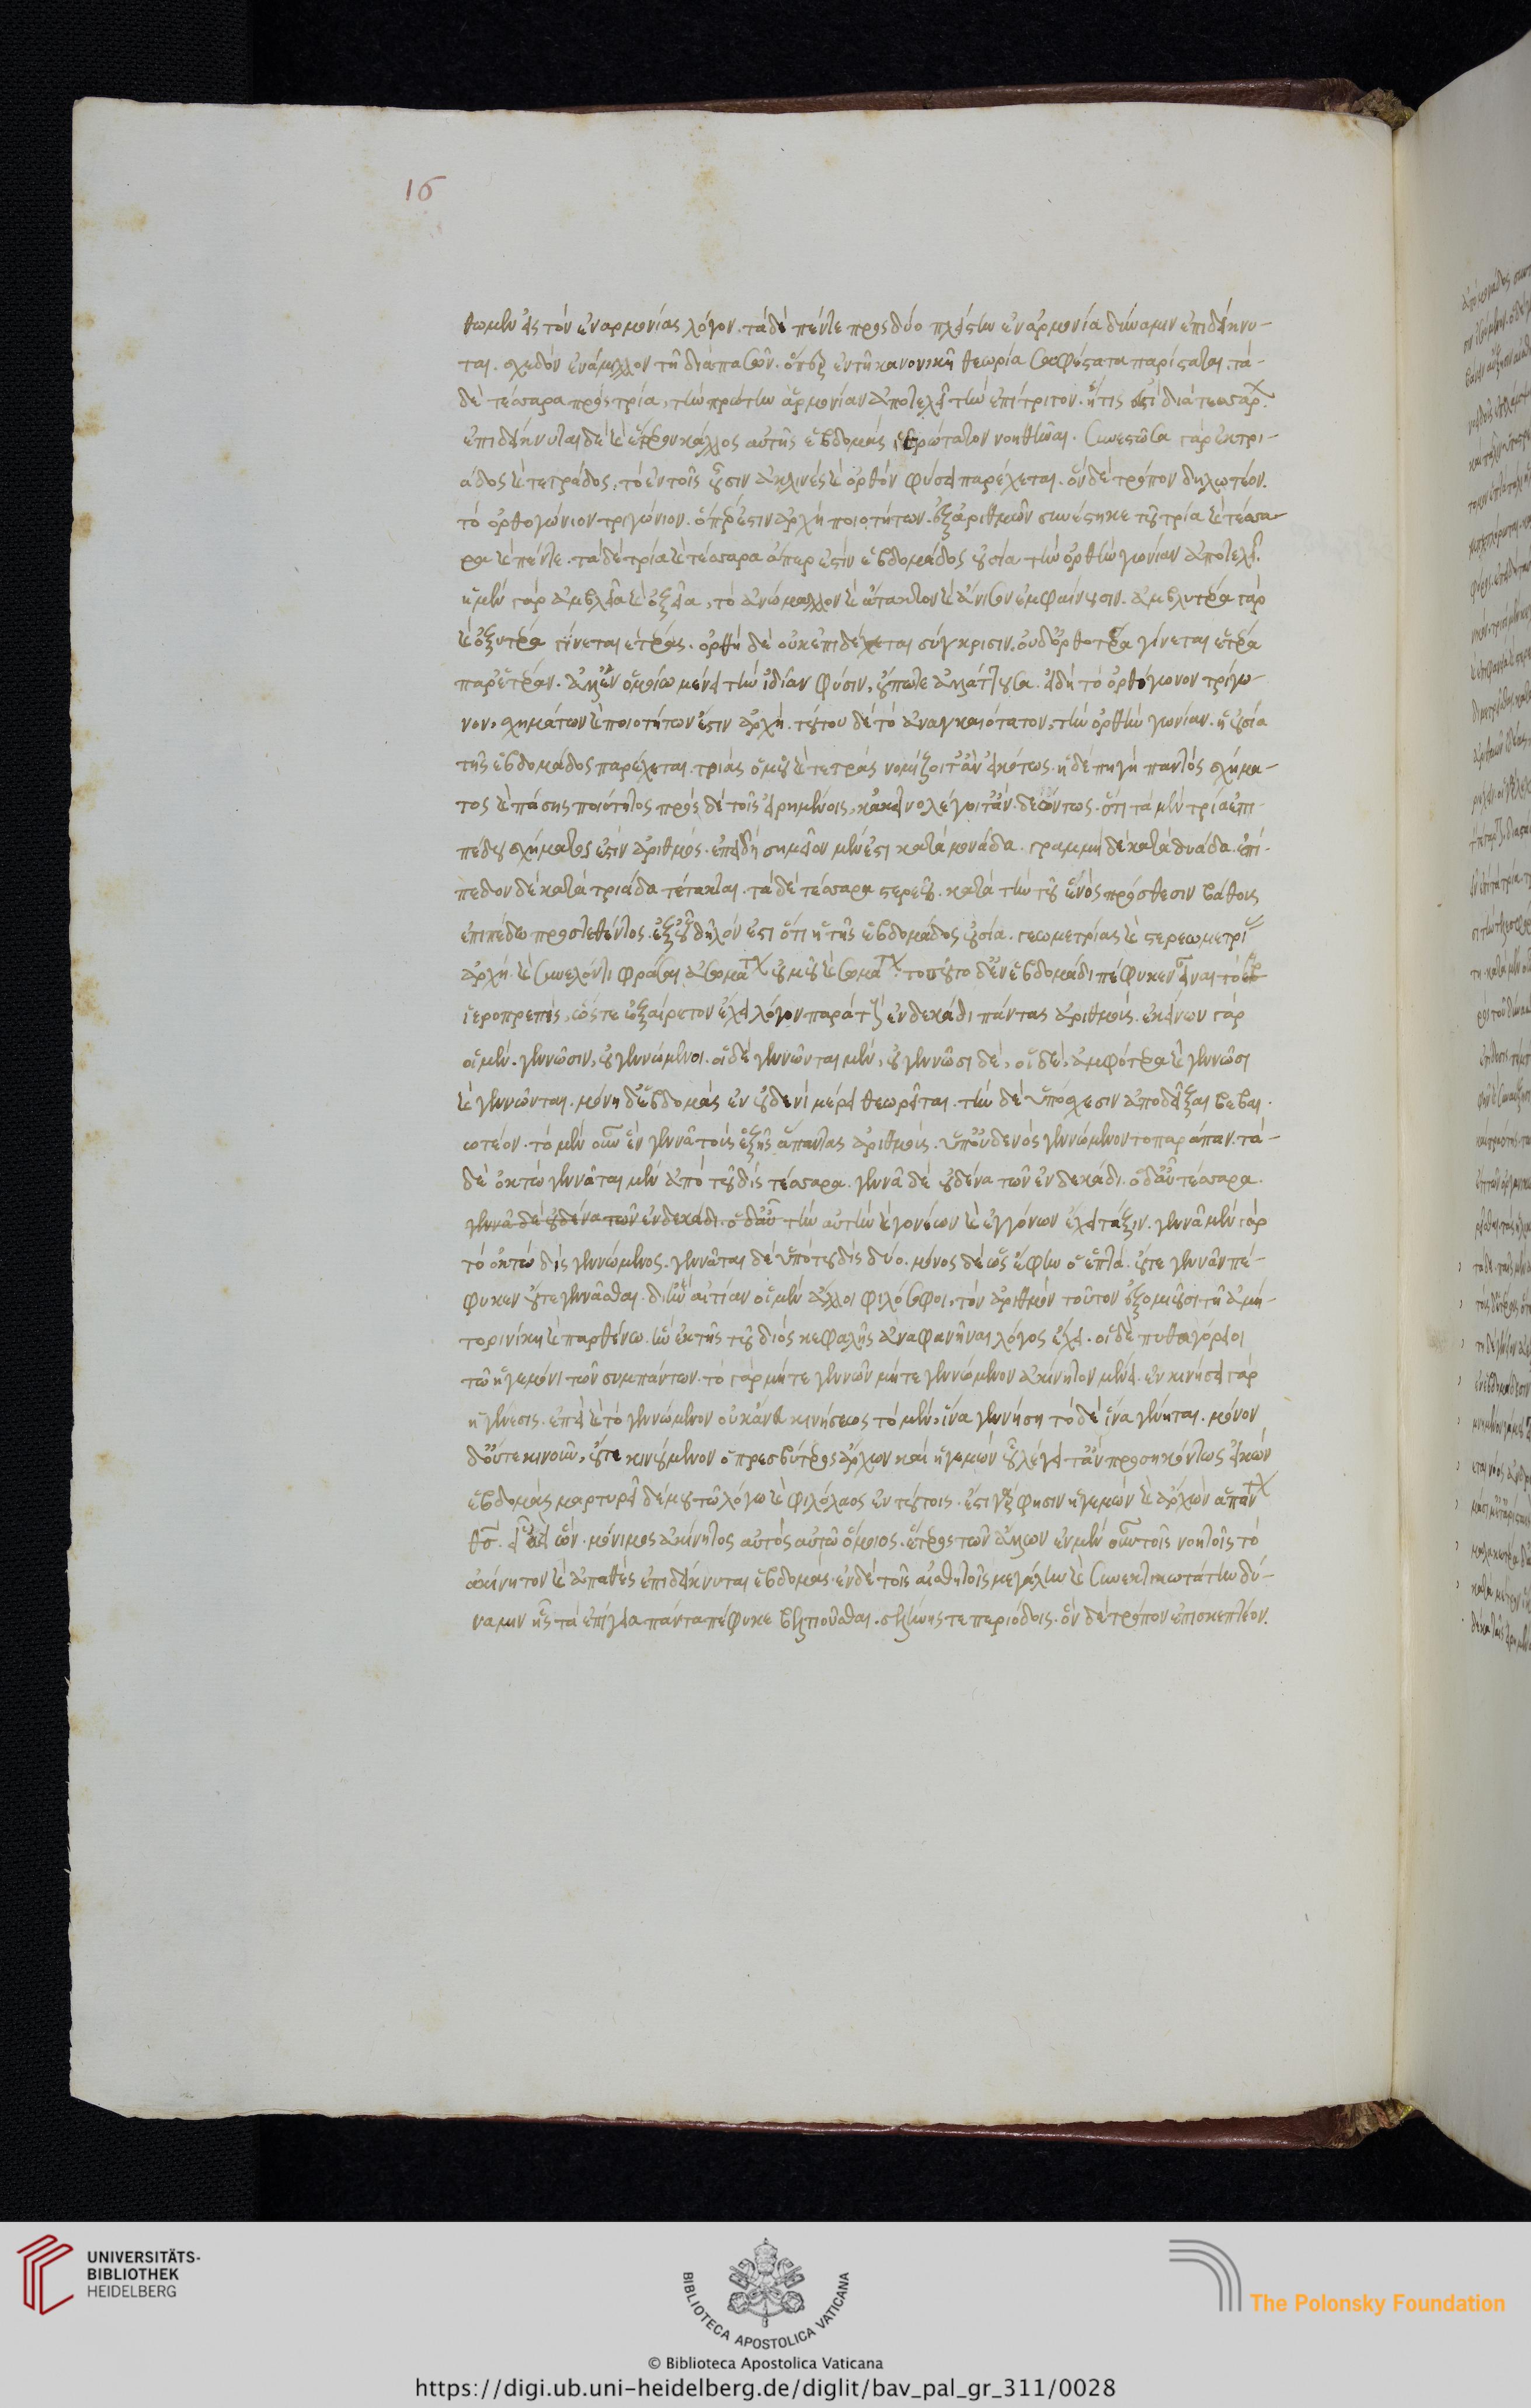 16
θωμεν εἰς τὸν ἐναρμονίας λόγον. τὰ δὲ πέντε προς δύο πλείστην ἐναρμονία δύναμιν ἐπιδείκνυ-
ται. σχεδὸν ἐνάμιλλον τῆ διαπασῶν. ὅπερ ἐν τῆ κανονικῆ θεωρία σαφέστατα παρίσταται. τὰ-
δὲ τέσσαρα πρὸς τρία, τὴν πρώτην ἁρμονίαν ἀποτελεῖ τὴν ἐπίτριτον. ἥτις ἐστὶ διὰ τεσσάρ
ἐπιδείκνυται δὲ καὶ ἕτερον κάλλος αὐτῆς ἑβδομάς ἱερώτατον νοηθῆναι. συνεστῶσα γὰρ ἐκ τρι-
άδος καὶ τετράδος, τὸ ἐν τοῖς οὖσιν ἀκλινὲς καὶ ὀρθὸν φύσει παρέχεται. ὃν δὲ τρόπον δηλωτέον.
τὸ ὀρθογώνιον τριγώνιον. ὅπερ ἐστὶν ἀρχὴ ποιοτήτων. ἐξ ἀριθμῶν συνέστηκε τοῦ τρία καὶ τέσσα-
ρα καὶ πέντε. τὰ δὲ τρία καὶ τέσσαρα ἅπερ ἐστὶν ἑβδομάδος οὐσία τὴν ὀρθὴν γωνίαν ἀποτελεῖ.
ἡ μὲν γὰρ ἀμβλεῖα καὶ ὀξεῖα, τὸ ἀνώμαλλον καὶ ἄτακτον καὶ ἄνισον ἐμφαίνουσιν. ἀμβλυτέρα γὰρ
καὶ ὀξυτέρα γίνεται ἑτέρας. ὀρθὴ δὲ οὐκ ἐπιδέχεται σύγκρισιν. οὐδ' ὀρθοτέρα γίνεται ἑτέρα
παρ' ἑτέραν. ἀλλ' ἐν ὁμοίω μένει τὴν ἰδίαν φύσιν, οὔποτε ἀλλάττουσα. εἰ δὴ τὸ ὀρθόγωνον τρίγω-
νον, σχημάτων καὶ ποιοτήτων ἐστὶν ἀρχὴ. τούτου δὲ τὸ ἀναγκαιότατον, τὴν ὀρθὴν γωνίαν. ἡ οὐσία
τῆς ἑβδομάδος παρέχεται. τριὰς ὁμοῦ καὶ τετρὰς νομίζοιτ' ἂν εἰκότως. ἡδε πηγὴ παντὸς σχήμα-
τος καὶ πάσης ποιότητος πρὸς δὲ τοῖς εἰρημένοις, κἀκεῖνο λέγοιτ' ἂν δεόντως. ὅτι τὰ μὲν τρία ἐπι-
πέδου σχήματος ἐστὶν ἀριθμός. ἐπειδὴ σημεῖον μὲν ἐστι κατὰ μονάδα. γραμμὴ δὲ κατὰ δυάδα. ἐπί-
πεδον δὲ κατὰ τριάδα τέτακται. τὰ δὲ τέσσαρα στερεοῦ. κατὰ τὴν τοῦ ἑνὸς πρόσθεσιν βάθους
ἐπιπέδω προστεθέντος. ἐξ οὗ δῆλόν ἐστι ὅτι ἡ τῆς ἑβδομάδος οὐσία. γεωμετρίας καὶ στερεωμετρί
ἀρχὴ. καὶ συνελόντι φράσαι ἀσωμάτ ὁμοῦ καὶ σωμάτ. τοσοῦτο δ' ἐν ἑβδομάδι πέφυκεν εἶναι τὸ
ἱεροπρεπὲς, ὥστε ἐξαίρετον ἔχει λόγον παρὰ τοὺς ἐν δεκάδι πάντας ἀριθμούς. ἐκείνων γὰρ
οἱ μὲν. γεννῶσιν, οὐ γεννώμενοι. οἱ δὲ γεννῶνται μὲν, οὐ γεννῶσι δὲ, οἱ δὲ, ἀμφότερα καὶ γεννῶσι
καὶ γεννῶνται. μόνη δ' ἑβδομὰς ἐν οὐδενὶ μέρει θεωρεῖται. τὴν δὲ ὑπόσχεσιν ἀποδείξαι βεβαι-
ωτέον. τὸ μὲν οὖν ἓν γεννᾶ τοὺς ἑξῆς ἅπαντας ἀριθμούς. ὑπ' οὐδενὸς γεννώμενον τοπαράπαν. τὰ-
δὲ ὀκτὼ γεννᾶται μὲν ἀπὸ τοῦ δὶς τέσσαρα. γεννᾶ δὲ οὐδένα τῶν ἐν δεκάδι. ὁ δ' αὖ τέσσαρα.
γεννᾶ δὲ οὐδένα τῶν ἐν δεκάδι. ὁ δ' αὖ τὴν αὐτὴν καὶ γονέων καὶ ἐγγόνων ἔχει τάξιν. γεννᾶ μὲν γὰρ
τὸ ὀκτὼ δὶς γεννώμενος. γεννᾶται δὲ ὑπὸ τοῦ δὶς δύο. μόνος δὲ ὡς ἔφην ὁ ἑπτά. οὔτε γεννᾶν πέ-
φυκεν οὔτε γεννᾶσθαι. δι' ἣν αἰτίαν οἱ μὲν ἄλλοι φιλόσοφοι, τὸν ἀριθμὸν τοῦτον ἐξομοιοῦσι τῆ ἀμή-
τορι νίκη καὶ παρθένω. ἣν ἐκ τῆς τοῦ διὸς κεφαλῆς ἀναφανῆναι λόγος ἔχει. οἱ δὲ πυθαγόρειοι
τῶ ἡγεμόνι τῶν συμπάντων. τὸ γὰρ μήτε γεννῶν μήτε γεννώμενον ἀκίνητον μένει. ἐν κινήσει γὰρ
ἡ γένεσις. ἐπεὶ καὶ τὸ γεννώμενον οὐκ ἄνευ κινήσεως τὸ μὲν, ἵνα γεννήση τὸ δὲ ἵνα γένηται. μόνον
δ' οὔτε κινοῦν, οὔτε κινούμενον ὁ πρεσβύτερος ἄρχων καὶ ἡγεμὼν οὗ λέγοιτ' ἂν προσηκόντως εἰκὼν
ἑβδομὰς μαρτυρεῖ δέ μου τῶ λόγω καὶ φιλόλαος ἐν τούτοις. ἔστι γὰρ φησιν ἡγεμὼν καὶ ἄρχων ἁπάντ
θσ. εἷς ἀεὶ ὢν. μόνιμος ἀκίνητος αὐτὸς αὑτῶ ὅμοιος. ἕτερος τῶν ἄλλων ἐν μὲν οὖν τοῖς νοητοῖς τὸ
ἀκίνητον καὶ ἀπαθὲς ἐπιδείκνυται ἑβδομάς. ἐν δὲ τοῖς αἰσθητοῖς μεγάλην καὶ συνεκτικωτάτην δύ-
ναμιν ἧς τὰ ἐπίγεια πάντα πέφυκε βελτιοῦσθαι. σελήνης τε περιόδοις. ὃν δὲ τρόπον ἐπισκεπτέον.
UNIVERSITÄTS-
BIBLIOTHEK
HEIDELBERG
BIBLIOTECA APOSTOLICA VATICANA
The Polonsky Foundation
© Biblioteca Apostolica Vaticana
https://digi.ub.uni-heidelberg.de/diglit/bav_pal_gr_311/0028